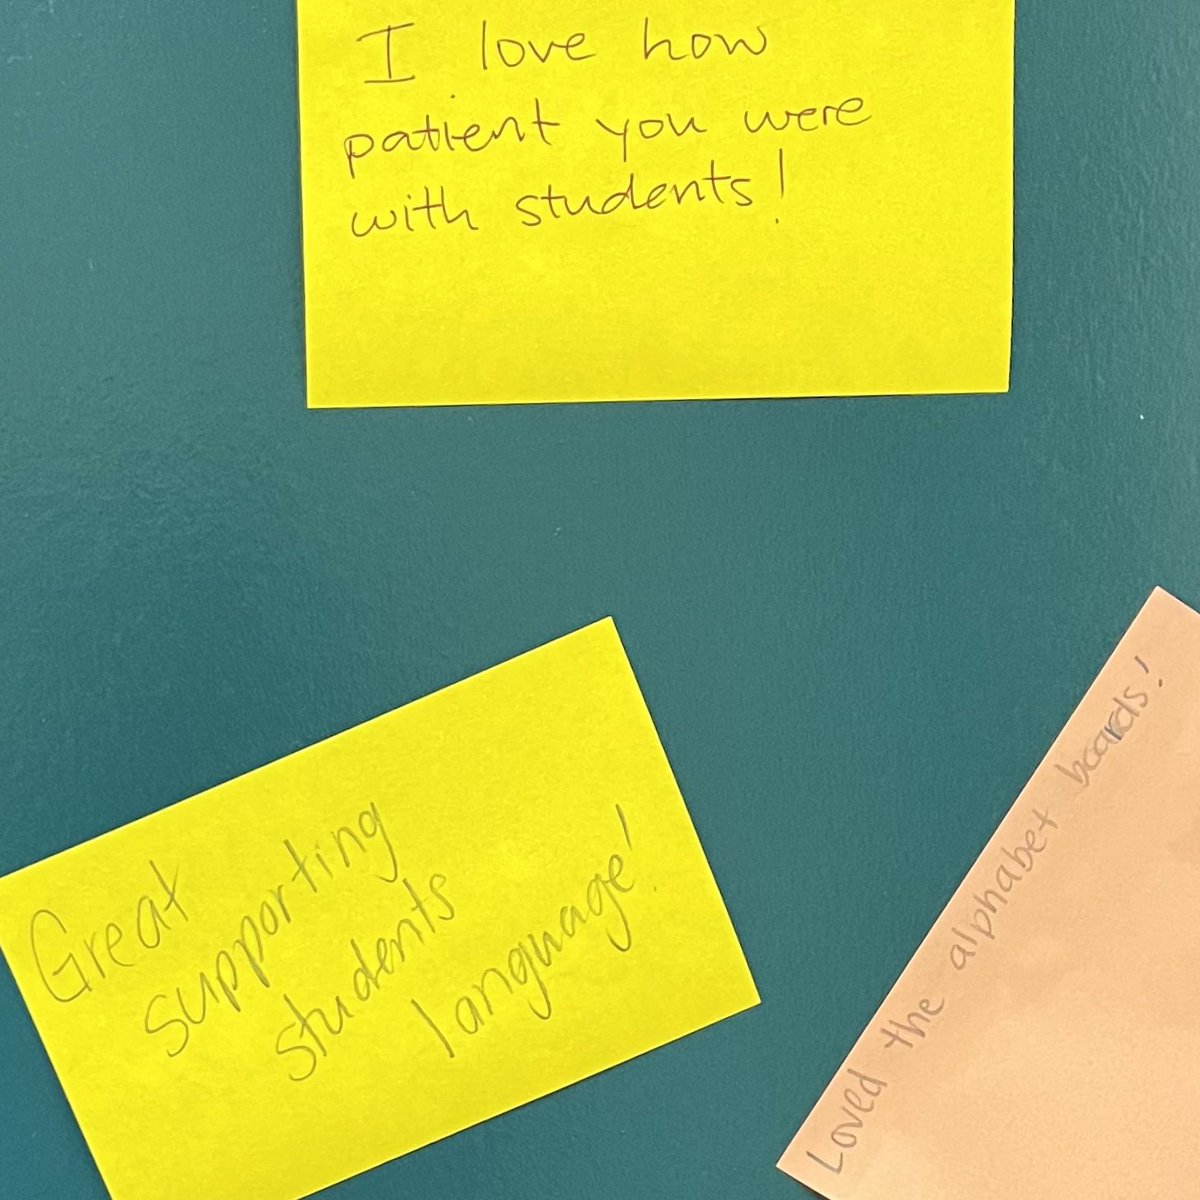 I love how
patient you were
with students!
Great
supporting
students
language!
Loved the alphabet boards!